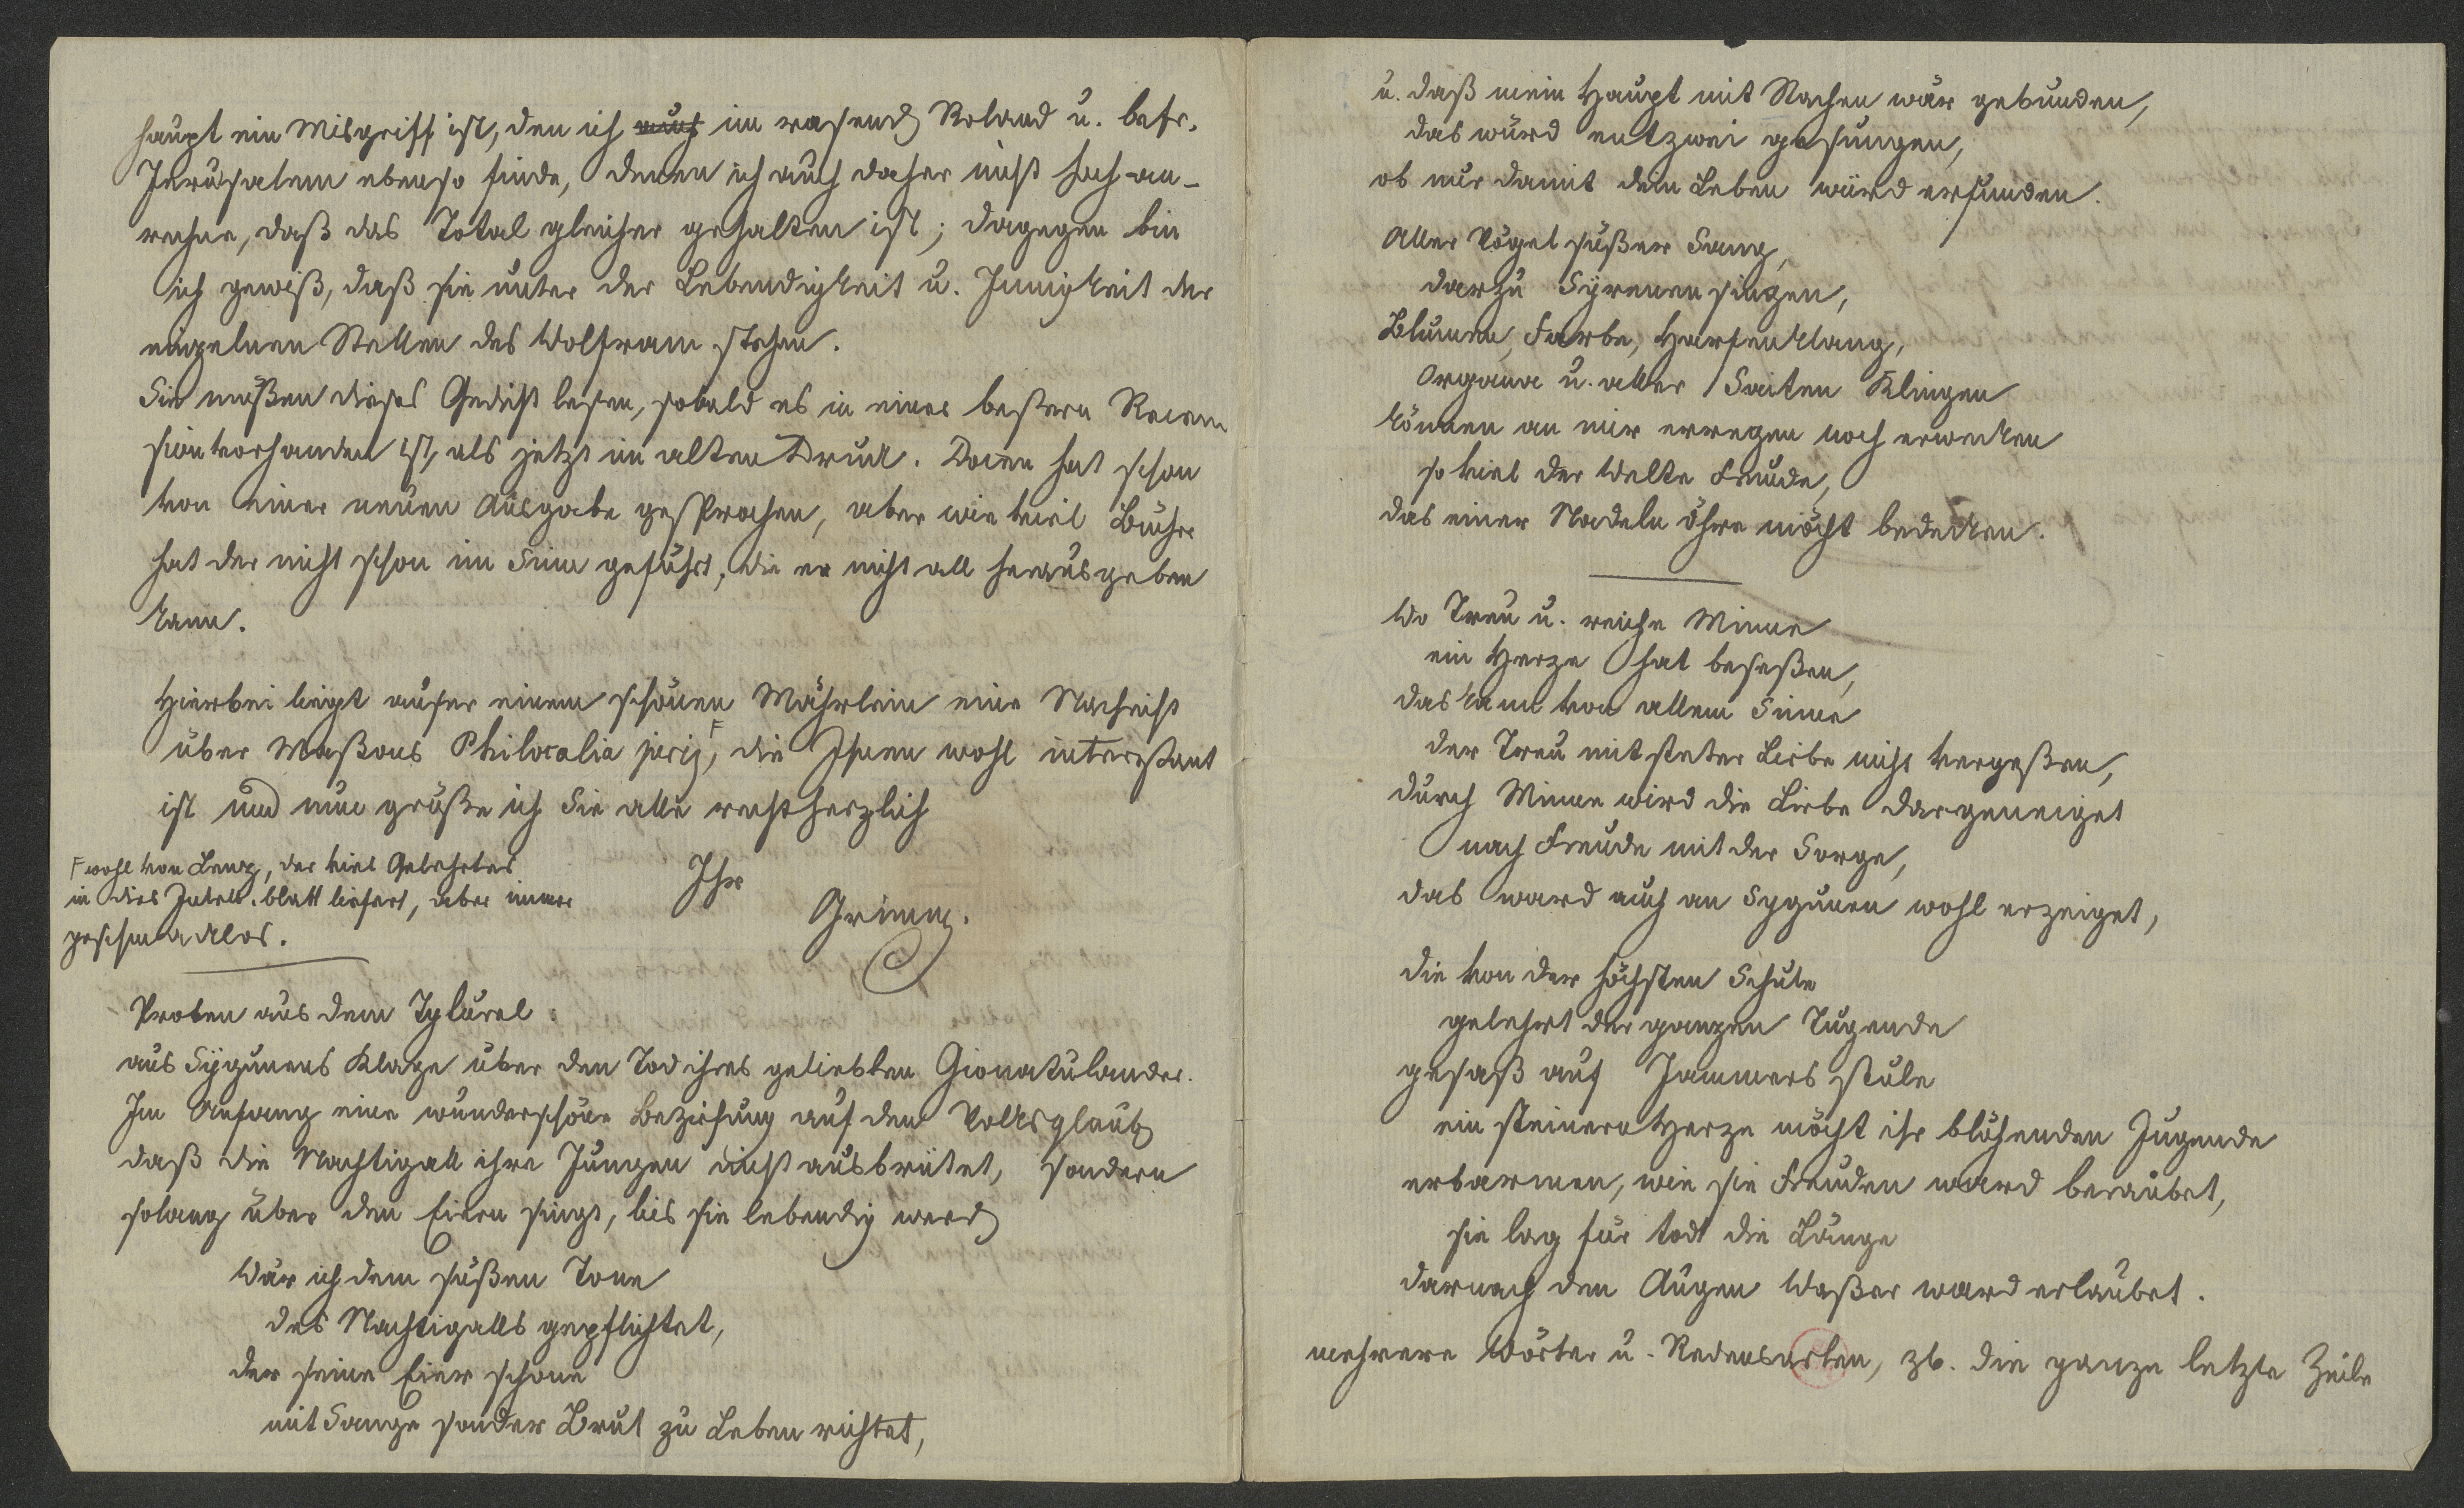 haupt ein Misgriff ist, den ich auch im rasend Roland u. befr.
Jerusalem ebenso finde, denen ich auch daher nicht hoch an-
rechne, daß das Total gleicher gehalten ist; dagegen bin
ich gewiß, daß sie unter der Lebendigkeit u. Innigkeit der
einzelnen Stellen des Wolfram stehen.
Sie müßen dieses Gedicht lesen, sobald es in einer beßern Recen
sion vorhanden ist, als jetzt im alten Druck. Docen hat schon
von einer neuen Ausgabe gesprochen, aber wie viel Bücher
hat der nicht schon im Sinn geführt, die er nicht all herausgeben
kann.
Hierbei liegt außer einem schönen Mährlein eine Nachricht
über Maßons Philocalia F, die Ihnen wohl intereßant
ist und nun grüße ich Sie alle recht herzlich
Ihr
Grimm.
F wohl von Lenz, der viel Gelehrtes
in dies blatt liefert, aber immer
geschmacklos.
Proben aus dem Tyturel:
aus Sygunens Klage über den Tod ihres geliebten Gionatulander.
Im Anfang eine wunderschöne Beziehung auf den Volksglaub
daß die Nachtigall ihre Jungen nicht ausbrütet, sondern
solang über den Eiern singt, bis sie lebendig werd
Wär ich dem süßen Tone
des Nachtigalls gepflichtet,
der seine Eier schone
mit Sange sonder Brut zu Leben richtet,
u. daß mein Haupt mit Nachen wär gebunden,
das würd entzwei gesungen,
ob nur damit dem Leben würd erfunden.
Aller Vögel süßer Sang,
darzu Syrenen singen,
Blumen, Farbe, Harfenklang,
Organa u. aller Saiten Klingen
können an mir erregen noch erwecken
so viel der Welte Freude,
das einer Nadeln öhre möcht bedecken.
Wo Treu u. reiche Minne
ein Herze hat beseßen,
das kann von allem Sinne
der Treu mit steter Liebe nicht vergeßen,
durch Minne wird die Liebe dargeneiget
nach Freude mit der Sorge,
das ward auch an Sygunen wohl erzeiget,
die von der höchsten Schule
gelehrt der ganzen Tugende
gesaß auf Jammers stule
ein steinern Herze möcht ihr blühenden Jugende
erbarmen, wie sie Freuden ward beraubet,
sie lag für todt die Länge
darnach den Augen Waßer ward erlaubet.
mehrere Wörter u. Redensarten, zb. die ganze letzte Zeile